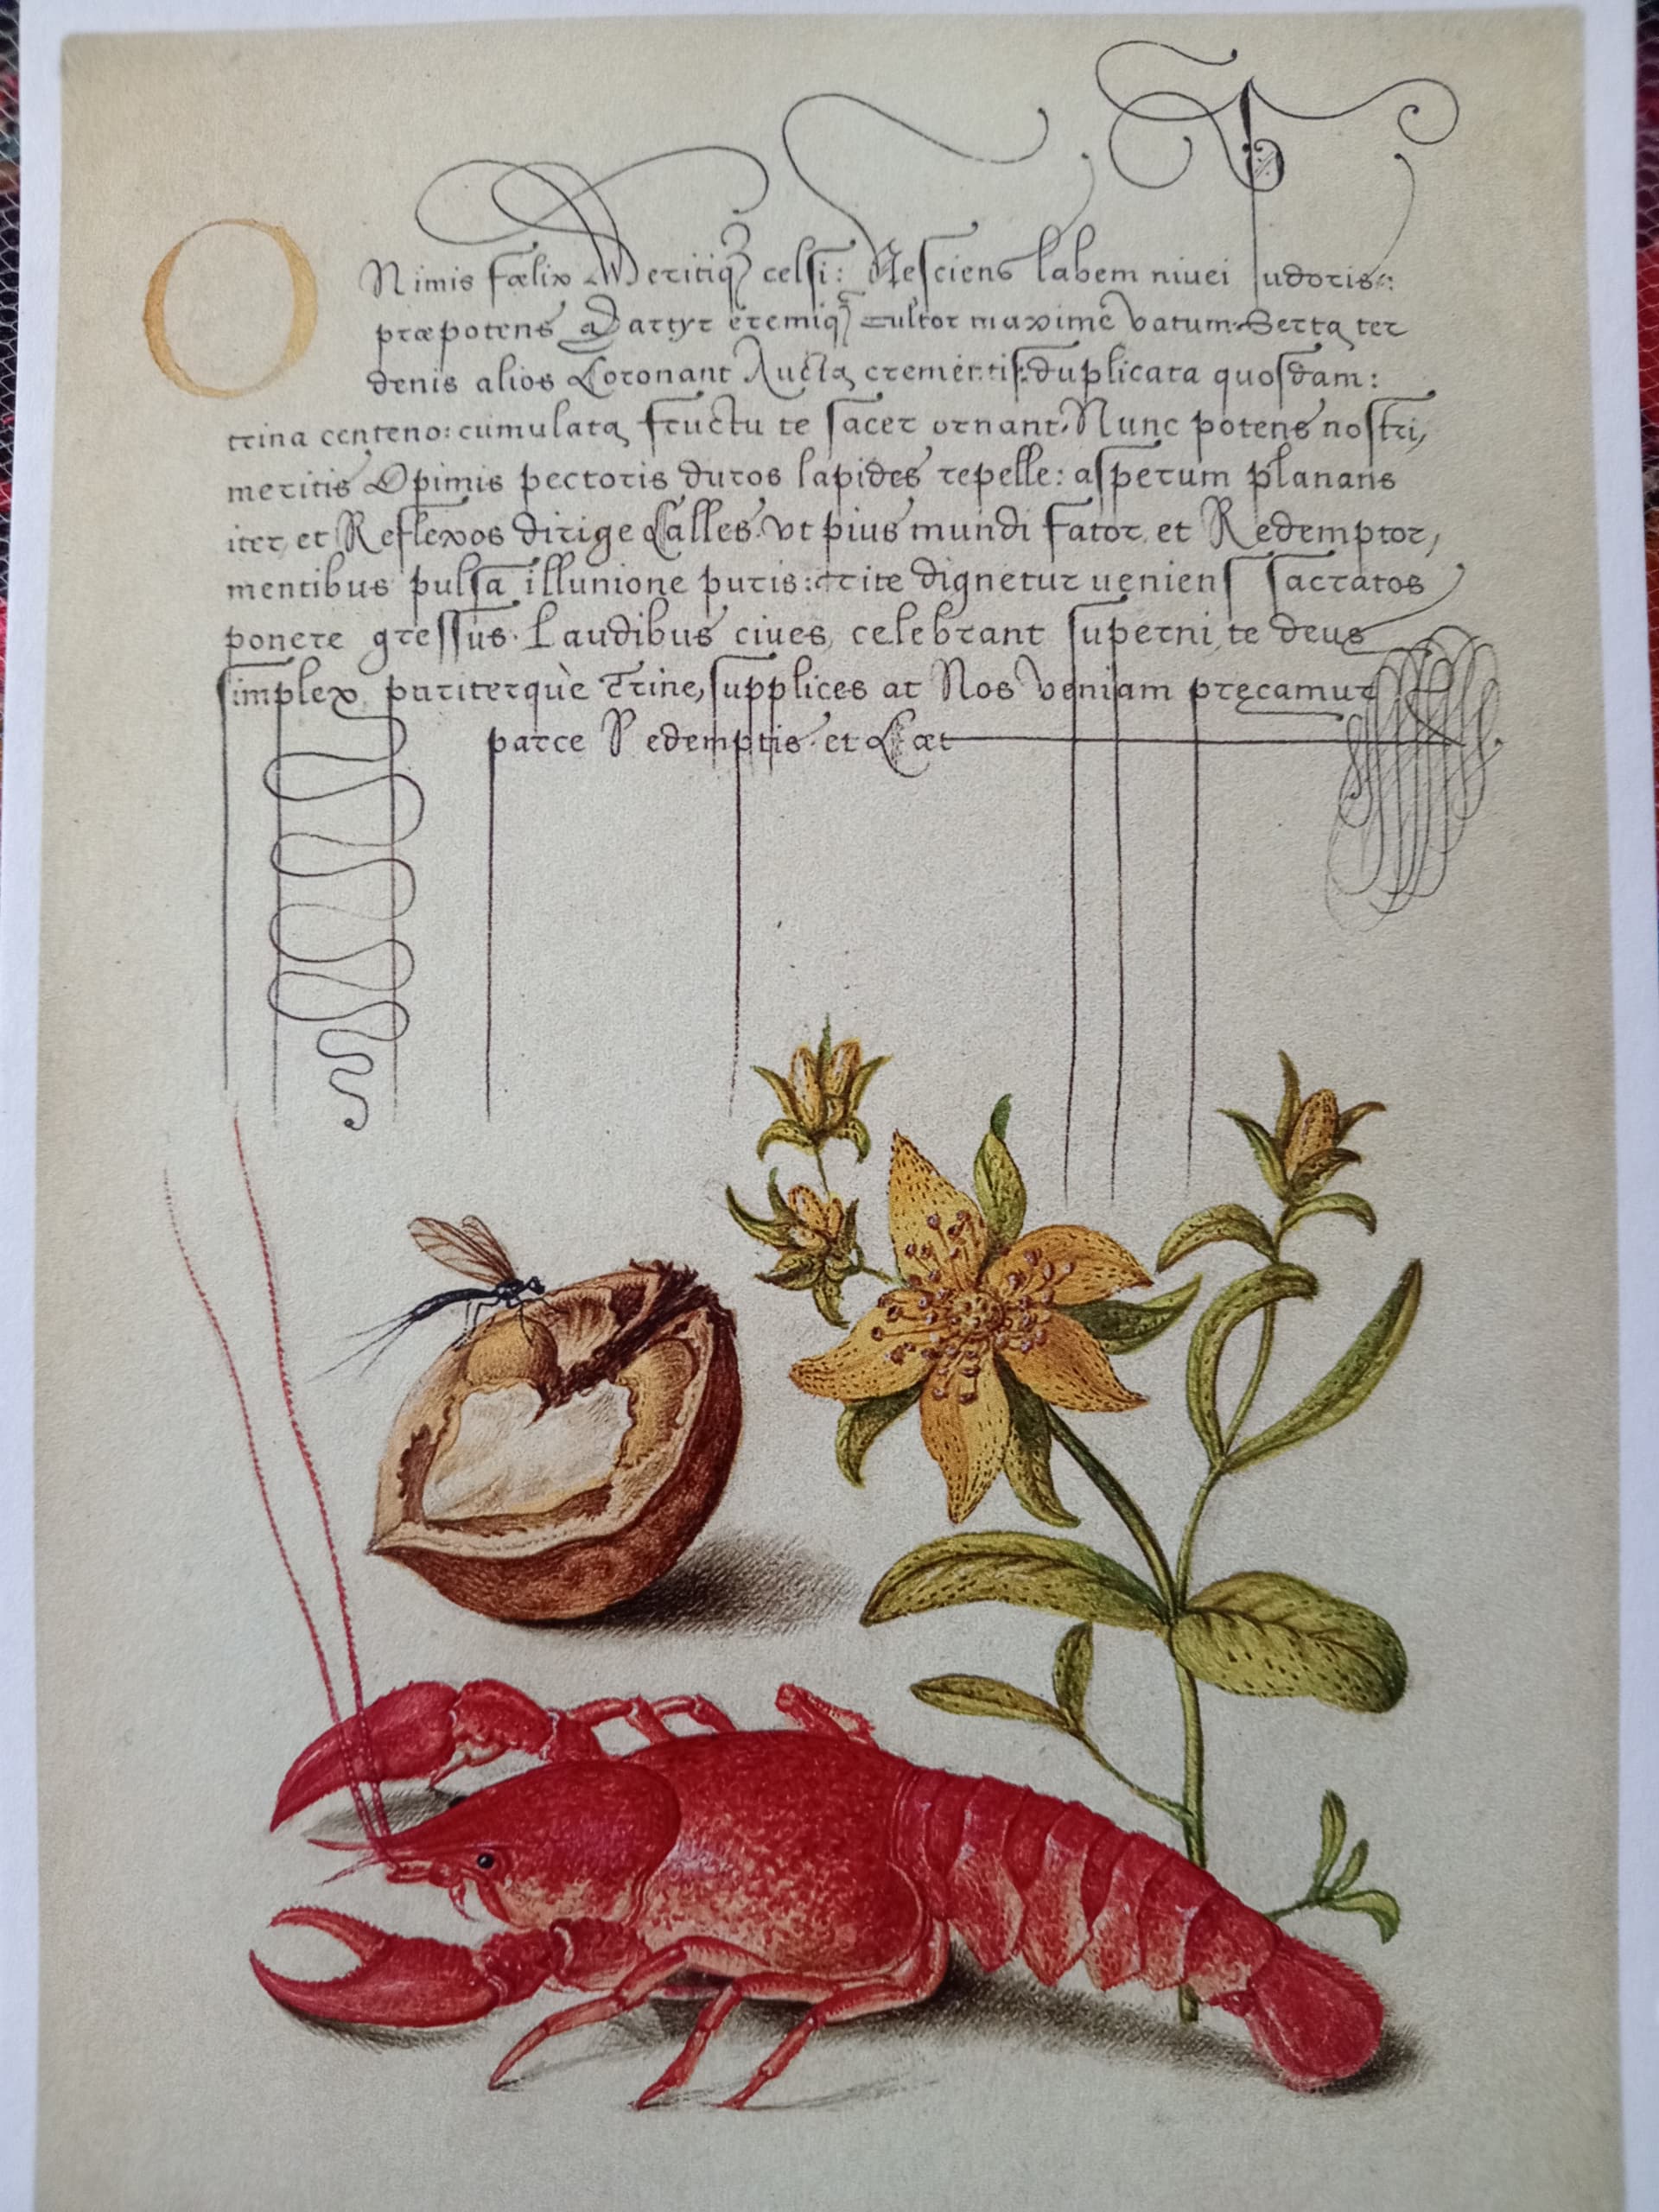 O Nimis fælix Meritiq́ celsi: Nesciens labem niuei pudoris:
præpotens Martyr eremiq́ cultor maxime vatum. Serta ter
denis alios Coronant Aucta crementis: duplicata quosdam:
trina centeno: cumulata fructu te sacer ornant. Nunc potens nostri,
meritis Opimis pectoris duros lapides repelle: asperum planans
iter, et Reflexos dirige Calles. vt pius mundi sator, et Redemptor,
mentibus pulsa illunione puris: rite dignetur ueniens sacratos
ponere gressus. Laudibus ciues, celebrant superni, te deus
simplex, pariterquè Trine, supplices at Nos veniam pręcamur
parce Redemptis. et Cæt